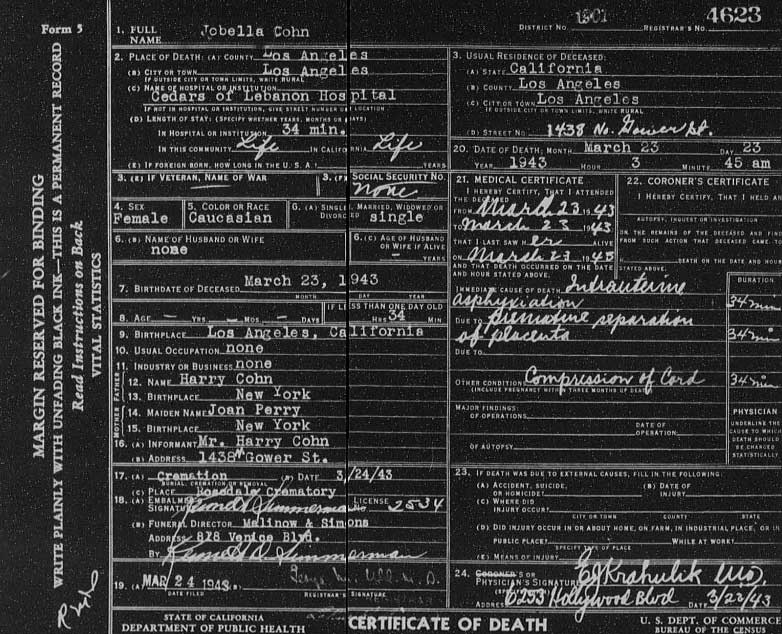 Form 5
MARGIN RESERVED FOR BINDING
WRITE PLAINLY WITH UNFADING BLACK INK—THIS IS A PERMANENT RECORD
Read Instructions on Back
VITAL STATISTICS
DISTRICT NO. 1901 REGISTRAR'S NO. 4623
1. FULL NAME Jobella Cohn
2. PLACE OF DEATH: (A) COUNTY Los Angeles
(B) CITY OR TOWN Los Angeles
IF OUTSIDE CITY OR TOWN LIMITS, WRITE RURAL
(C) NAME OF HOSPITAL OR INSTITUTION
Cedars of Lebanon Hospital
IF NOT IN HOSPITAL OR INSTITUTION, GIVE STREET NUMBER OR LOCATION
(D) LENGTH OF STAY: (SPECIFY WHETHER YEARS, MONTHS OR DAYS)
IN HOSPITAL OR INSTITUTION 34 min.
IN THIS COMMUNITY Life IN CALIFORNIA Life
(E) IF FOREIGN BORN, HOW LONG IN THE U. S. A.? YEARS
3. USUAL RESIDENCE OF DECEASED:
(A) STATE California
(B) COUNTY Los Angeles
(C) CITY OR TOWN Los Angeles
IF OUTSIDE CITY OR TOWN LIMITS, WRITE RURAL
(D) STREET NO. 1438 No. Gower St.
3. (E) IF VETERAN, NAME OF WAR
3. (F) SOCIAL SECURITY NO.
none
4. SEX Female
5. COLOR OR RACE Caucasian
6. (A) SINGLE, MARRIED, WIDOWED OR DIVORCED single
6. (B) NAME OF HUSBAND OR WIFE
none
6. (C) AGE OF HUSBAND OR WIFE IF ALIVE
– YEARS
7. BIRTHDATE OF DECEASED March 23, 1943
MONTH DAY YEAR
8. AGE – YRS. – MOS. – DAYS IF LESS THAN ONE DAY OLD HRS 34 MIN
9. BIRTHPLACE Los Angeles, California
10. USUAL OCCUPATION none
11. INDUSTRY OR BUSINESS none
FATHER
12. NAME Harry Cohn
13. BIRTHPLACE New York
MOTHER
14. MAIDEN NAME Joan Perry
15. BIRTHPLACE New York
16. (A) INFORMANT Mr. Harry Cohn
(B) ADDRESS 1438 N Gower St.
17. (A) Cremation (B) DATE 3/24/43
BURIAL, CREMATION OR REMOVAL
(C) PLACE Rosedale Crematory
18. (A) EMBALMER'S SIGNATURE Kenneth A. Simmerman LICENSE No. 2534
(B) FUNERAL DIRECTOR Malinow & Simons
ADDRESS 818 Venice Blvd.
BY Kenneth A. Simmerman
19. (A) MAR 24 1943 (B)
DATE FILED REGISTRAR'S SIGNATURE
20. DATE OF DEATH: MONTH March 23 DAY 23
YEAR 1943 HOUR 3 MINUTE 45 am
21. MEDICAL CERTIFICATE
I HEREBY CERTIFY, THAT I ATTENDED THE DECEASED
FROM March 23 1943
TO March 23 1943
THAT I LAST SAW her ALIVE
ON March 23 1943
AND THAT DEATH OCCURRED ON THE DATE AND HOUR STATED ABOVE.
22. CORONER'S CERTIFICATE
I HEREBY CERTIFY, THAT I HELD AN
AUTOPSY, INQUEST OR INVESTIGATION
ON THE REMAINS OF THE DECEASED AND FIND
FROM SUCH ACTION THAT DECEASED CAME TO
DEATH ON THE DATE AND HOUR
STATED ABOVE.
DURATION
IMMEDIATE CAUSE OF DEATH Intrauterine
asphyxiation 34 min
DUE TO premature separation
of placenta 34 min
DUE TO
OTHER CONDITIONS Compression of Cord 34 min
(INCLUDE PREGNANCY WITHIN THREE MONTHS OF DEATH)
MAJOR FINDINGS:
OF OPERATIONS
DATE OF OPERATION
OF AUTOPSY
PHYSICIAN
UNDERLINE THE CAUSE TO WHICH DEATH SHOULD BE CHARGED STATISTICALLY
23. IF DEATH WAS DUE TO EXTERNAL CAUSES, FILL IN THE FOLLOWING:
(A) ACCIDENT, SUICIDE, OR HOMICIDE?
(B) DATE OF INJURY
(C) WHERE DID INJURY OCCUR?
CITY OR TOWN COUNTY STATE
(D) DID INJURY OCCUR IN OR ABOUT HOME, ON FARM, IN INDUSTRIAL PLACE, OR IN
PUBLIC PLACE? WHILE AT WORK?
SPECIFY TYPE OF PLACE
(E) MEANS OF INJURY
24. CORONER'S OR PHYSICIAN'S SIGNATURE EJ Krahulik MD.
ADDRESS 6253 Hollywood Blvd DATE 3/23/43
STATE OF CALIFORNIA
DEPARTMENT OF PUBLIC HEALTH
CERTIFICATE OF DEATH
U. S. DEPT. OF COMMERCE
BUREAU OF THE CENSUS